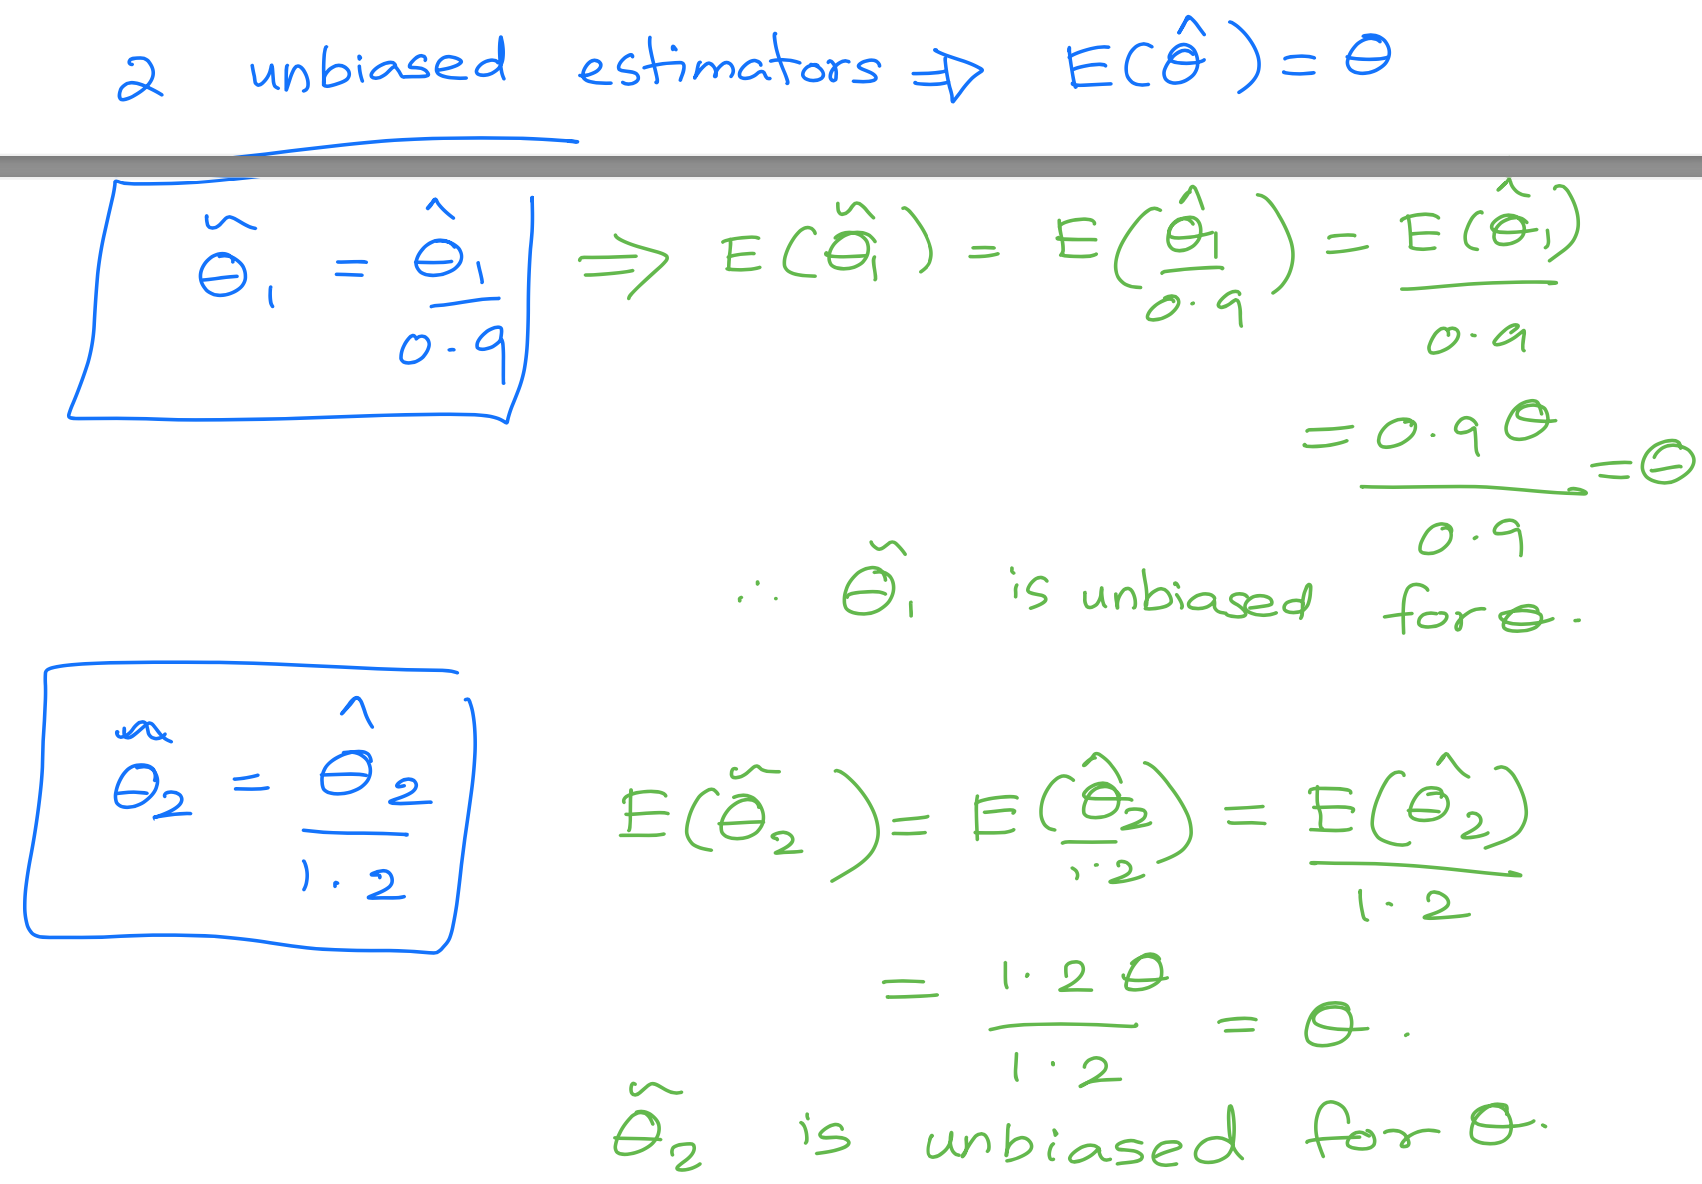 2 unbiased estimators ⇒ E(θ̂) = θ
θ̃₁ = θ̂₁/0.9 ⇒ E(θ̃₁) = E(θ̂₁/0.9) = E(θ̂₁)/0.9
= 0.9θ/0.9 = θ
∴ θ̃₁ is unbiased for θ.
θ̃₂ = θ̂₂/1.2 E(θ̃₂) = E(θ̂₂/1.2) = E(θ̂₂)/1.2
= 1.2θ/1.2 = θ.
θ̃₂ is unbiased for θ.